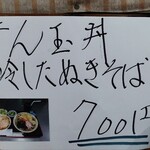 ん玉丼
冷したぬきそば
700円